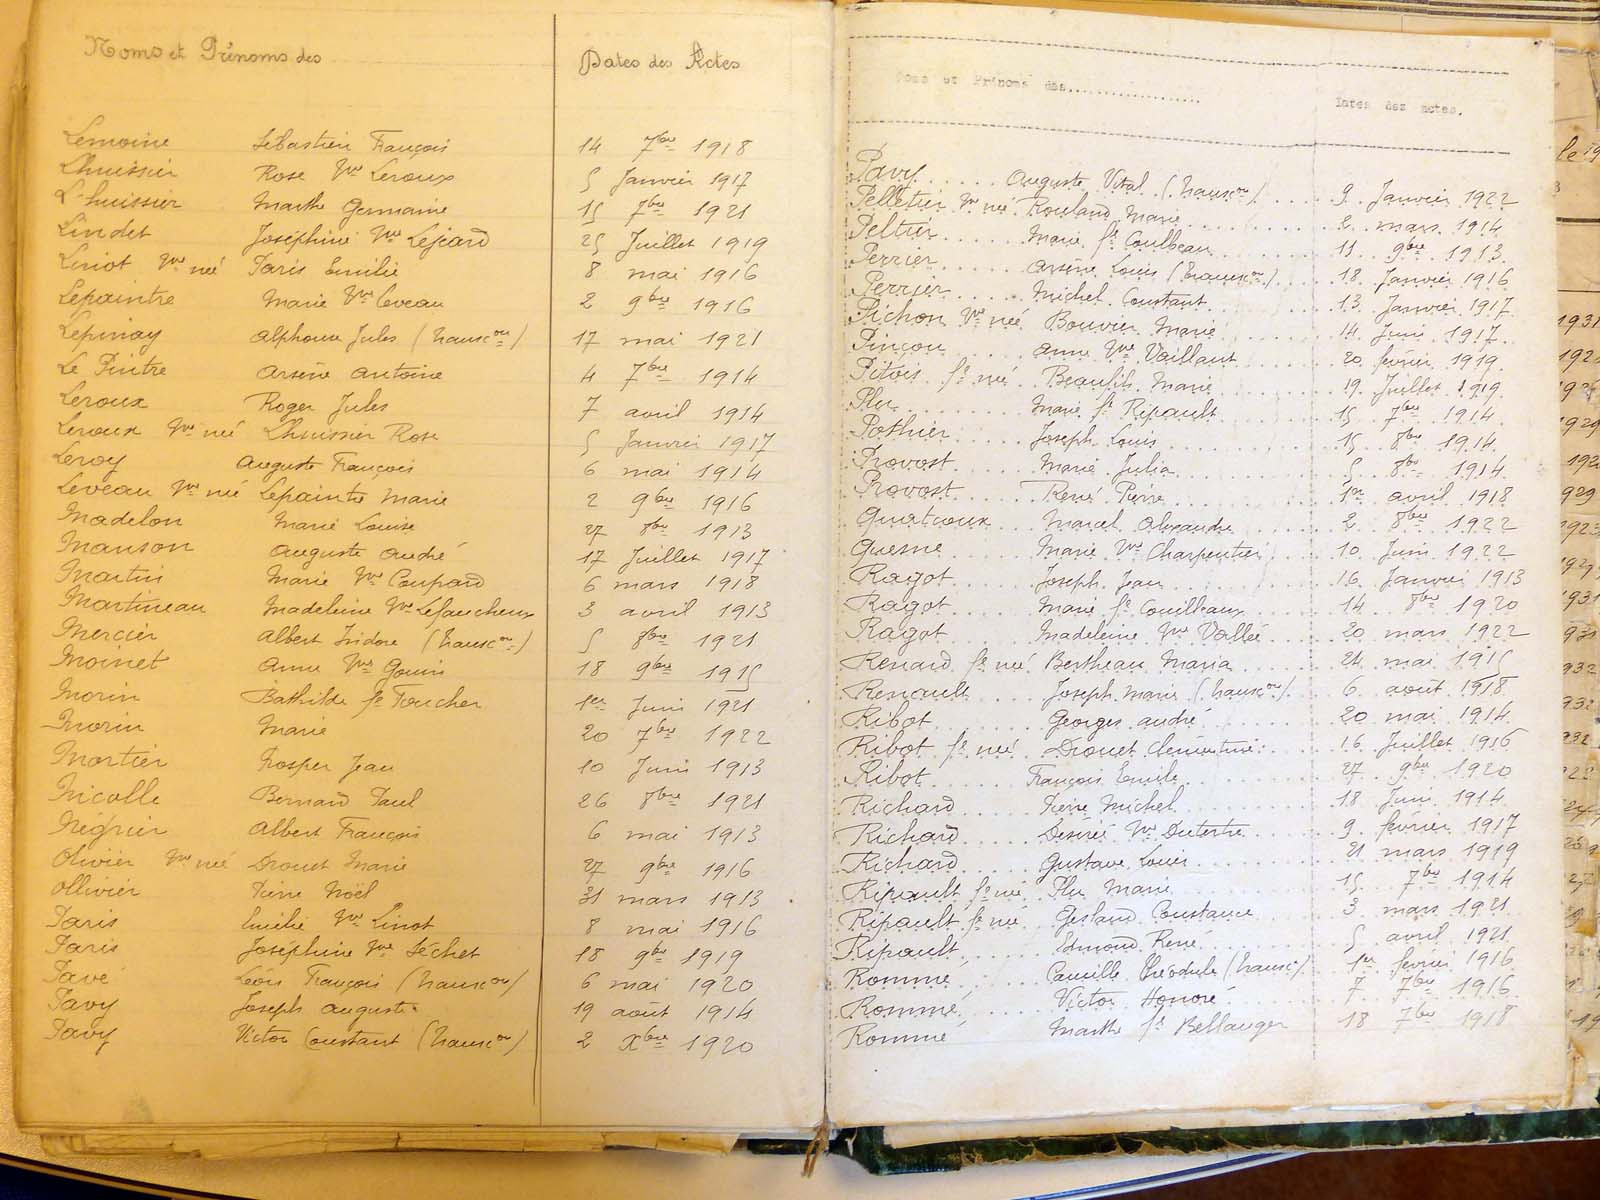 Noms et Prénoms des Dates des Actes
Lemoine Sébastien François 14 7bre 1918
Lhuissier Rose Vve Leroux 5 Janvier 1917
L'huissier Marthe Germaine 15 7bre 1921
Lindet Joséphine Vve Lejard 25 Juillet 1919
Liniot Vve née Paris Emilie 8 mai 1916
Lepaintre Marie Vve Leveau 2 9bre 1916
Lepinay Alphonse Jules (transcon) 17 mai 1921
Le Pintre Arsène Antoine 4 7bre 1914
Leroux Roger Jules 7 avril 1914
Leroux Vve née Lhuissier Rose 5 Janvier 1917
Leroy Auguste François 6 mai 1914
Leveau Vve née Lepaintre Marie 2 9bre 1916
Madelon Marie Louise 27 8bre 1913
Manson Auguste André 17 Juillet 1917
Martin Marie Vve Coupard 6 mars 1918
Martineau Madeleine Vve Lefaucheux 3 avril 1913
Mercier Albert Isidore (transcon) 5 8bre 1921
Moinet Anne Vve Gouin 18 9bre 1915
Morin Bathilde fe Foucher 1er Juin 1921
Morin Marie 20 7bre 1922
Mortier Prosper Jean 10 Juin 1913
Nicolle Bernard Paul 26 8bre 1921
Négrier Albert François 6 mai 1913
Olivier Vve née Drouet Marie 27 9bre 1916
Ollivier Pierre Noël 31 mars 1913
Paris Emilie Vve Liniot 8 mai 1916
Paris Joséphine Vve Séchet 18 9bre 1919
Pavé Léon François (transcon) 6 mai 1920
Pavy Joseph Auguste 19 août 1914
Pavy Victor Constant (transcon) 2 Xbre 1920
Noms et Prénoms des................... Dates des actes.
Pavy Auguste Vital (transcon) 9 Janvier 1922
Pelletier Vve née Rouland Marie 2 mars 1914
Peltier Marie fe Coulbeau 11 9bre 1913
Perrier Arsène Louis (transcon) 18 Janvier 1916
Perrier Michel Constant 13 Janvier 1917
Pichon Vve née Bouvier Marie 14 Juin 1917
Pinçon Anne Vve Vaillant 20 février 1919
Pitois fe née Beaufils Marie 19 Juillet 1919
Plu Marie fe Ripault 15 7bre 1914
Pothier Joseph Louis 15 8bre 1914
Provost Marie Julia 5 8bre 1914
Provost René Pierre 1er avril 1918
Quatroux Marcel Alexandre 2 8bre 1922
Quesne Marie Vve Charpentier 10 Juin 1922
Ragot Joseph Jean 16 Janvier 1913
Ragot Marie fe Couilleaux 14 8bre 1920
Ragot Madeleine Vve Vallée 20 mars 1922
Renard fe née Bertheau Maria 24 mai 1915
Renault Joseph Marie (transcon) 6 août 1918
Ribot Georges André 20 mai 1914
Ribot fe née Drouet Clémentine 16 Juillet 1916
Ribot François Emile 27 9bre 1920
Richard Pierre Michel 18 Juin 1914
Richard Désirée Vve Dutertre 9 février 1917
Richard Gustave Louis 21 mars 1919
Ripault fe née Plu Marie 15 7bre 1914
Ripault fe née Gesland Constance 3 mars 1921
Ripault Edmond René 5 avril 1921
Rommé Camille Théodule (transc) 1er février 1916
Rommé Victor Honoré 7 7bre 1916
Rommé Marthe fe Bellanger 18 7bre 1918